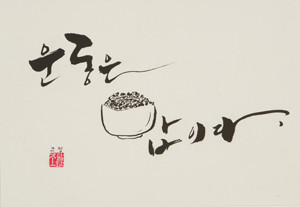 운동은
밥이다.